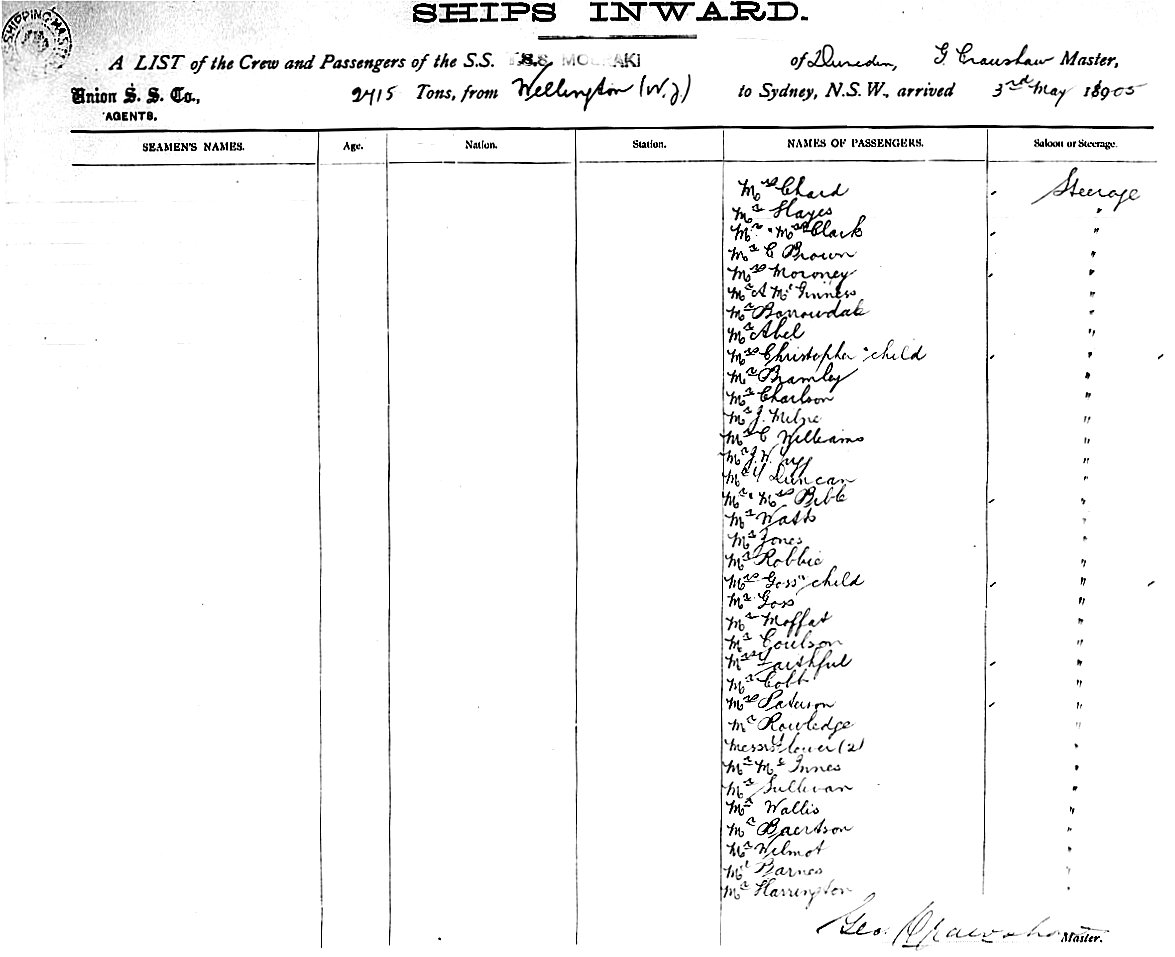 SHIPPING MAST
SHIPS INWARD.
A LIST of the Crew and Passengers of the S.S. S.S. MOERAKI of Dunedin, G. Crawshaw Master,
Union S. S. Co., 2415 Tons, from Wellington (N.Z) to Sydney, N.S.W., arrived 3rd May 18905
AGENTS.
SEAMEN'S NAMES. Age. Nation. Station. NAMES OF PASSENGERS. Saloon or Steerage.
Mrs Chard Steerage
Mr Hayes "
Mr " Mrs Clark "
Mr C Brown "
Mrs Moroney "
Mr A McGinness "
Mr Borrowdale "
Mr Abel "
Mrs Christopher " child "
Mr Bramley "
Mr Charlson "
Mr J. Milne "
Mr C Williams "
Mr J. W. "
Mr Duncan "
Mr " Mrs Bibb "
Mr Watts "
Mr Jones "
Mr Robbie "
Mrs Goss " child "
Mr Goss "
Mr Moffat "
Mr Coulson "
Faithful "
Mr Cobb "
Mrs Paterson "
Mr Rowledge "
Messrs Glover (2) "
Mr McInnes "
Mr Sullivan "
Mr Wallis "
Mr Baertson "
Mr Wilmot "
Mr Barnes "
Mr Harrington "
Geo. Crawshaw Master.